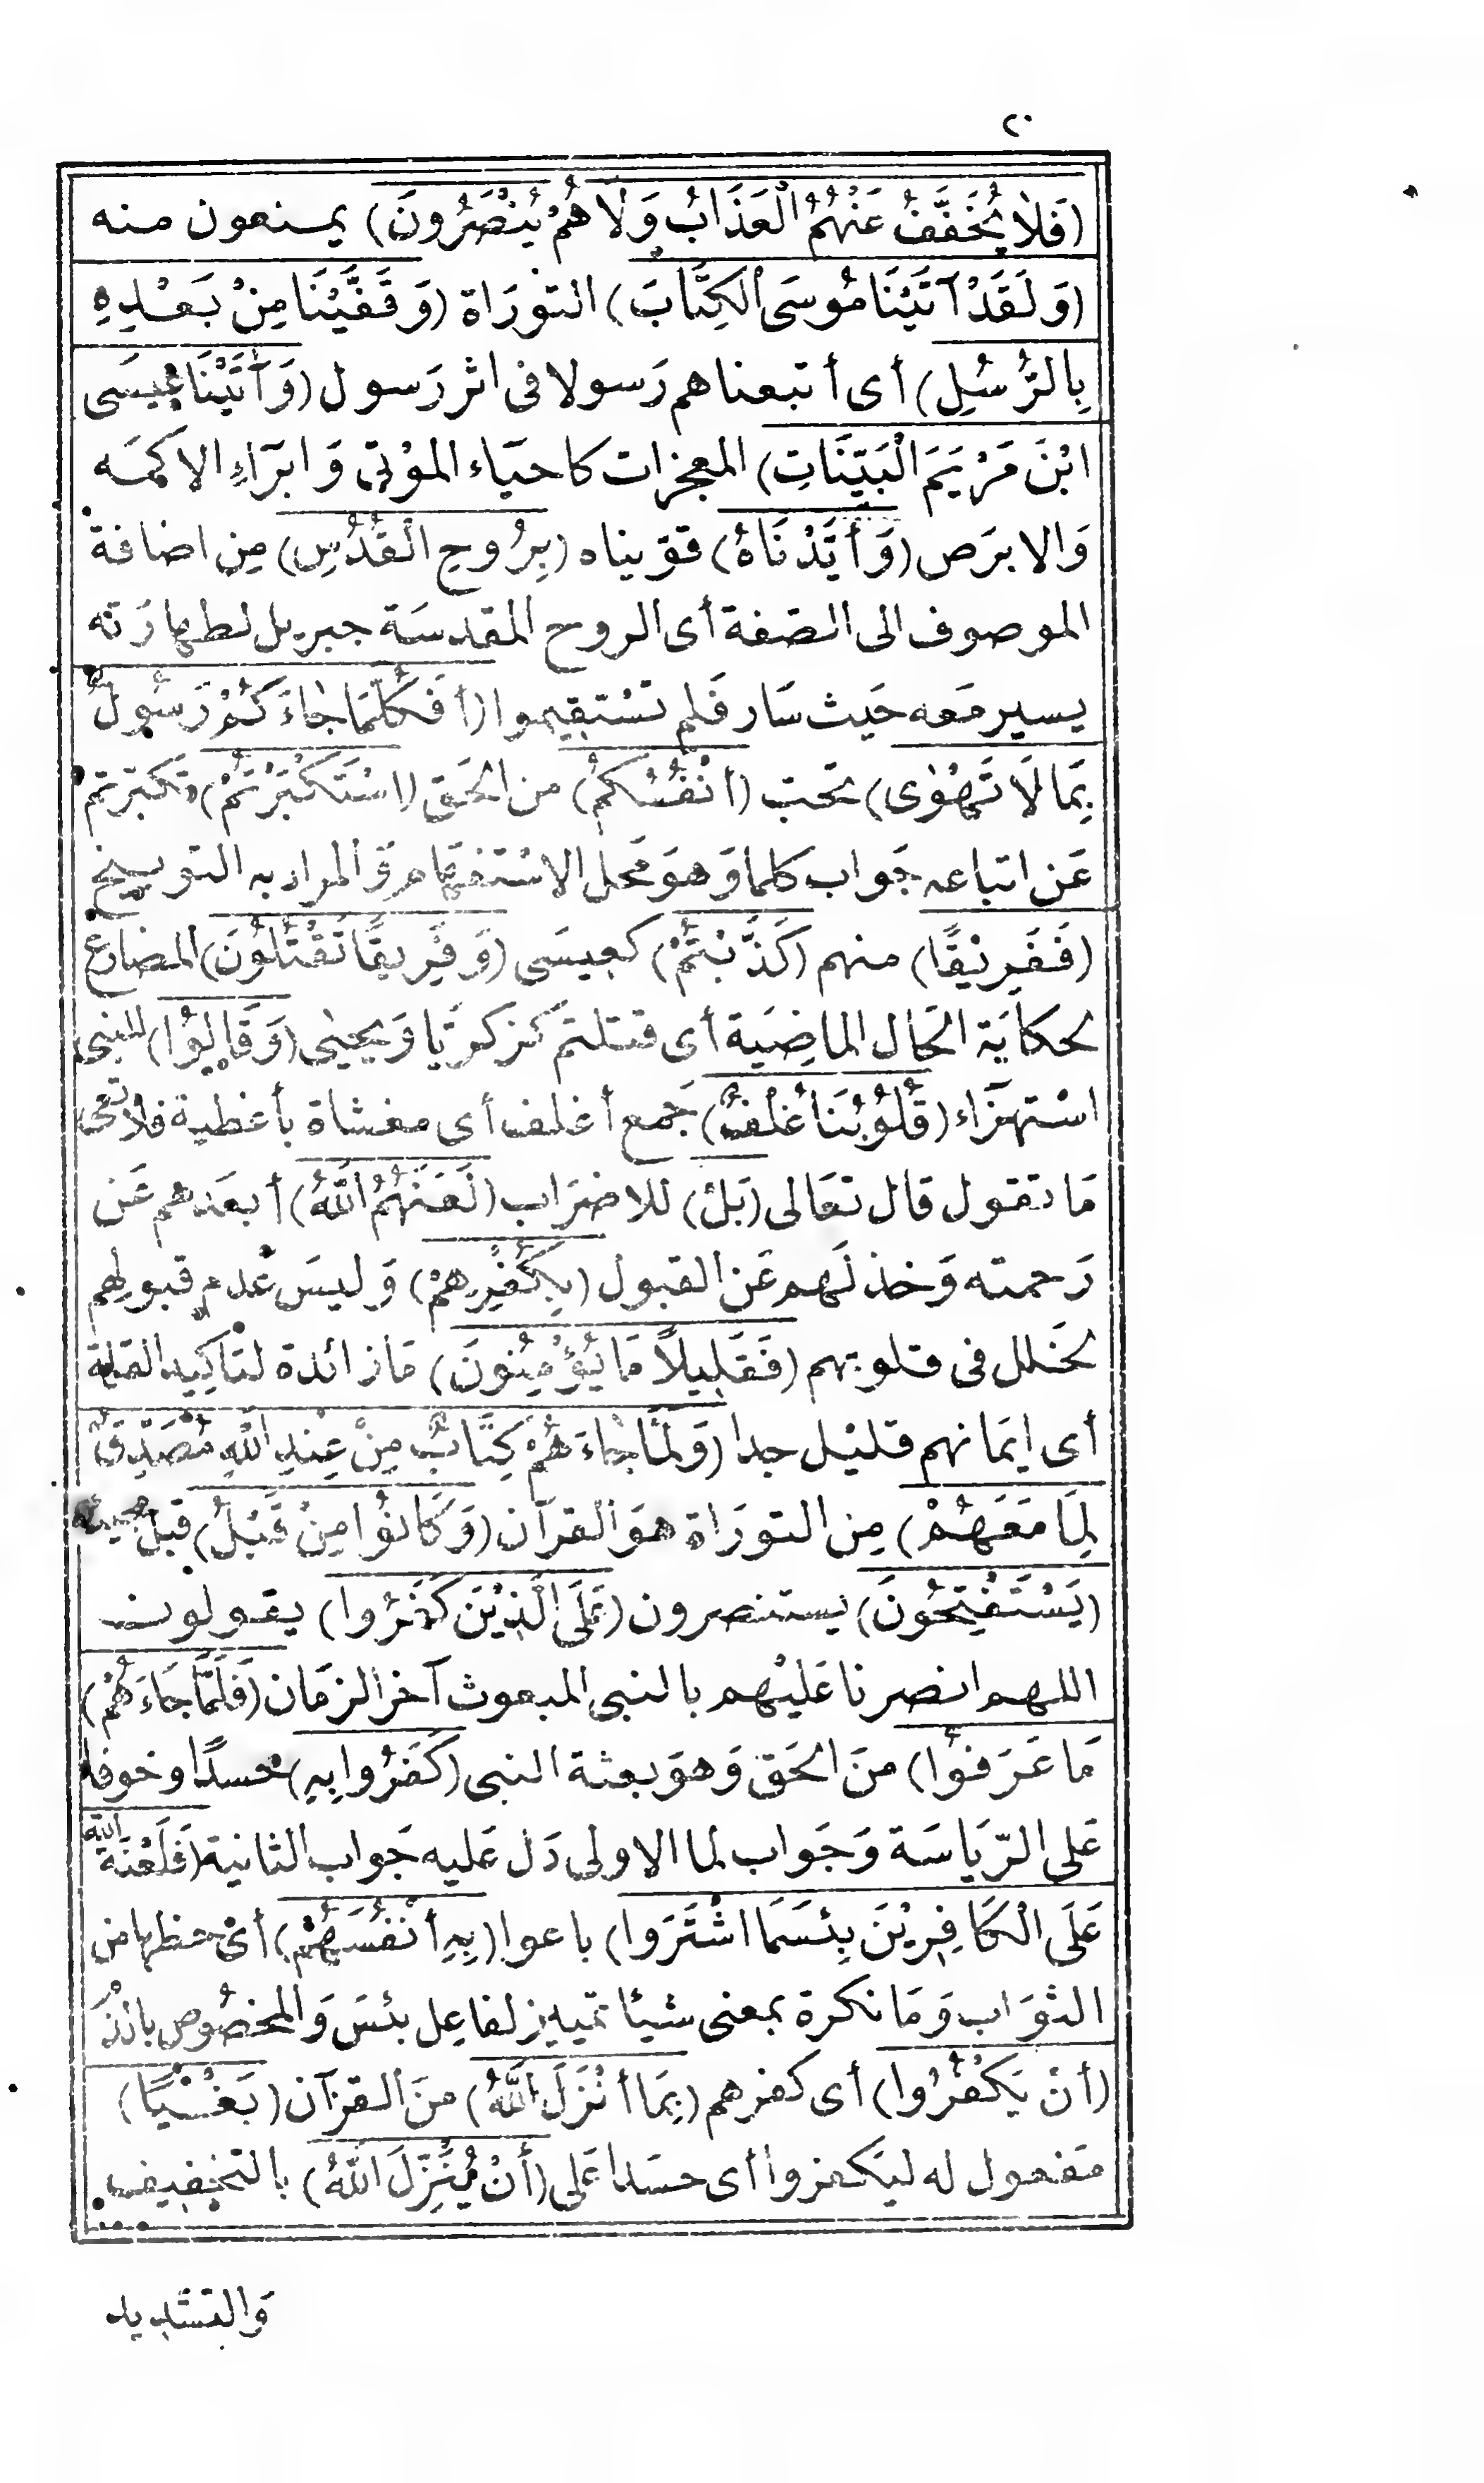 ٢٠
(فَلَا يُخَفَّفُ عَنْهُمُ الْعَذَابُ وَلَا هُمْ يُنْصَرُونَ) يمنعون منه
(وَلَقَدْ آتَيْنَا مُوسَى الْكِتَابَ) التورَاة (وَقَفَّيْنَا مِنْ بَعْدِهِ
بِالرُّسُلِ) أى أتبعناهم رَسولا فى اثر رَسول (وَآتَيْنَا عِيسَى
ابْنَ مَرْيَمَ الْبَيِّنَاتِ) المعجزات كاحيَاء الموْتى وَابرَآءِ الاكمَه
وَالابرَص (وَأَيَّدْنَاهُ) قوّيناه (بِرُوحِ الْقُدُسِ) مِن اضافة
الموصوف الى الصّفة أى الروح المقدسَة جبريل لطهارَته
يسير مَعه حَيث سَار فَلم تسْتقِيموا (أَفَكُلَّمَا جَاءَكُمْ رَسُولٌ
بِمَا لَا تَهْوَى) تحب (أَنْفُسُكُمْ) من الحَق (اسْتَكْبَرْتُمْ) تكبرتم
عَن اتباعه جَواب كلما وَهوَ مَحل الاسْتفهَام وَالمراد به التوبيخ
(فَفَرِيْقًا) منهم (كَذَّبْتُمْ) كعِيسَى (وَفَرِيقًا تَقْتُلُونَ) المضارع
لحكايَة الحَال الماضِيَة أى قتلتم كزكريَّا وَيحيٰى (وَقَالُوْا) للنبى
اسْتهزَآء (قُلُوْبُنَا غُلْفٌ) جَمع أغلف أى مغشاة بأغطية فلا تعى
مَا تقول قال تعَالى (بَلْ) للاضرَاب (لَعَنَهُمُ اللَّهُ) أبعَدهم عَن
رَحمته وَخذلَهم عَن القبول (بِكُفْرِهِمْ) وَليسَ عَدم قبولهم
لخَلل فى قلوبهم (فَقَلِيلًا مَا يُؤْمِنُونَ) مَا زائدة لتاكِيد القلة
أى ايمَانهم قليْل جدا (وَلَمَّا جَاءَهُمْ كِتَابٌ مِنْ عِنْدِ اللَّهِ مُصَدِّقٌ
لِمَا مَعَهُمْ) مِن التورَاة هوَ القرآن (وَكَانُوْا مِنْ قَبْلُ) قبل مجيئه
(يَسْتَفْتِحُونَ) يستنصرون (عَلَى الَّذِيْنَ كَفَرُوا) يقولون
اللهم انصرنا عَليْهم بالنبى المبعوث آخر الزمَان (فَلَمَّا جَاءَهُمْ)
مَا عَرَفُوْا) منَ الحَق وَهوَ بعثة النبى (كَفَرُوا بِهِ) حسدًا وخوفا
عَلى الرّيَاسَة وَجَواب لما الاولى دَل عَليه جَواب الثانية (فَلَعْنَةُ اللَّهِ
عَلَى الْكَافِرِيْنَ بِئْسَمَا اشْتَرَوا) باعوا (بِهِ أَنْفُسَهُمْ) أىْ حظها من
الثوَاب وَمَا نكرة بمعنى شيئا تمييز لفاعِل بئسَ وَالمخصُوص بالذّم
(أَنْ يَكْفُرُوا) أى كفرهم (بِمَا أَنْزَلَ اللَّهُ) منَ القرآن (بَغْيًا)
مَفعول له ليَكفروا أى حسَدا عَلى (أَنْ يُنَزِّلَ اللَّهُ) بالتخفِيف
وَالتشدِيد